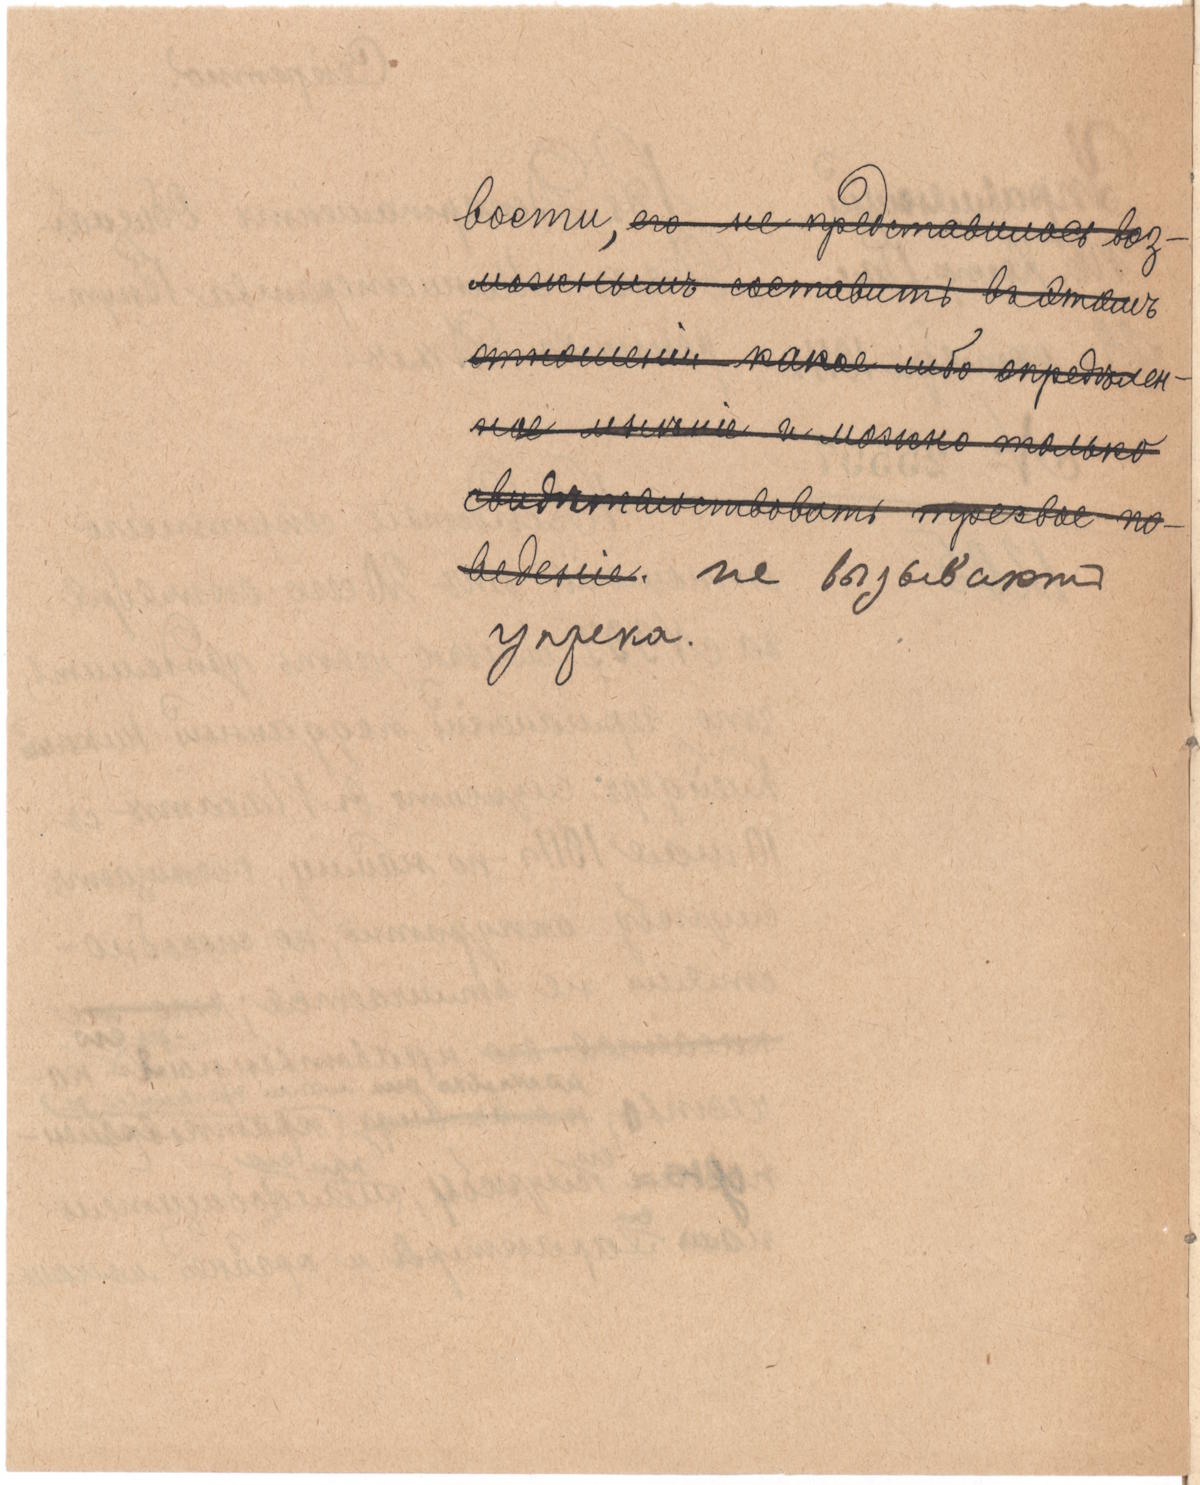 вости, его не представилось воз-
можнымъ составить въ этомъ
отношеніи какое либо опредѣлен-
ное мнѣніе и можно только
свидѣтельствовать трезвое по-
веденіе. не вызывают
упрека.